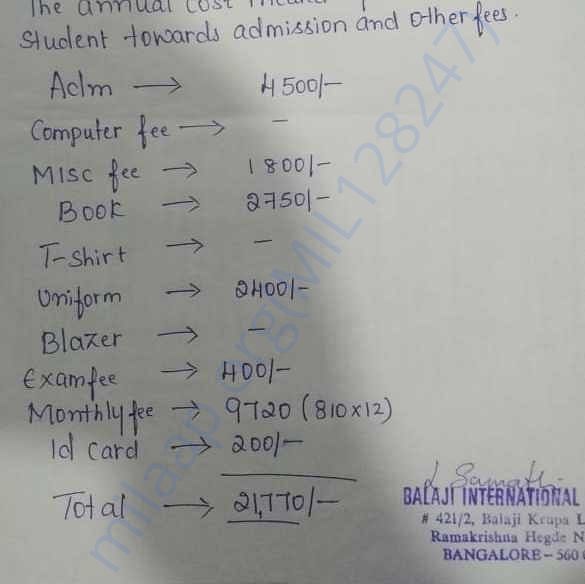 The annual cost
Student towards admission and other fees.
Adm → 4500/-
Computer fee → -
Misc fee → 1800/-
Book → 2750/-
T-shirt → -
Uniform → 2400/-
Blazer → -
Examfee → 400/-
Monthly fee → 9720 (810x12)
Id Card → 200/-
Total → 21,770/-
BALAJI INTERNATIONAL
# 421/2, Balaji Krupa L
Ramakrishna Hegde N
BANGALORE – 560
milaap.org(MIL1282471)